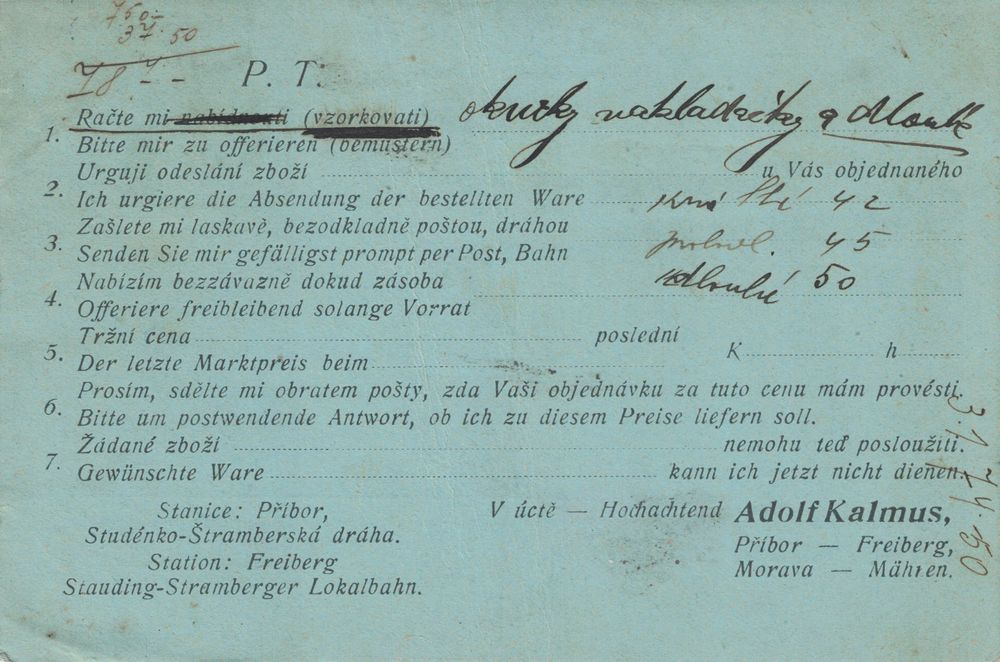 750-
37.50
787--
P. T.
1. Račte mi nabídnouti (vzorkovati) okurky nakladačky a dlouhé
Bitte mir zu offerieren (bemustern)
Urguji odeslání zboží u Vás objednaného
2. Ich urgiere die Absendung der bestellten Ware 42
Zašlete mi laskavě, bezodkladně poštou, dráhou
3. Senden Sie mir gefälligst prompt per Post, Bahn 45
Nabízím bezzávazně dokud zásoba dlouhé 50
4. Offeriere freibleibend solange Vorrat
Tržní cena poslední
5. Der letzte Marktpreis beim K h
Prosím, sdělte mi obratem pošty, zda Vaši objednávku za tuto cenu mám provésti.
6. Bitte um postwendende Antwort, ob ich zu diesem Preise liefern soll.
Žádané zboží nemohu teď posloužiti.
7. Gewünschte Ware kann ich jetzt nicht dienen.
Stanice: Příbor,
Studénko-Štramberská dráha.
Station: Freiberg
Stauding-Stramberger Lokalbahn.
V úctě — Hochachtend Adolf Kalmus,
Příbor — Freiberg,
Morava — Mähren.